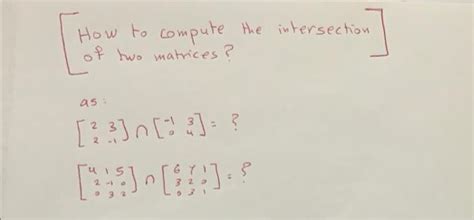 [How to compute the intersection
of two matrices?]
as:
[2 3
2 -1] ∩ [-1 3
0 4] = ?
[4 1 5
2 -1 0
0 3 2] ∩ [6 7 1
3 2 0
0 3 1] = ?